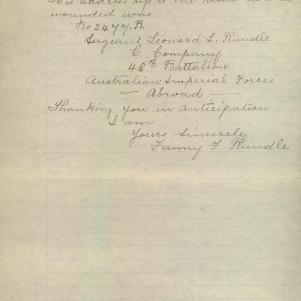 His address up to
wounded was
No 2477.B.
Sergeant Leonard L. Rundle
C Company
48th Battalion
Australian Imperial Forces
— Abroad —
Thanking you in anticipation
I am
Yours Sincerely
Fanny F Rundle